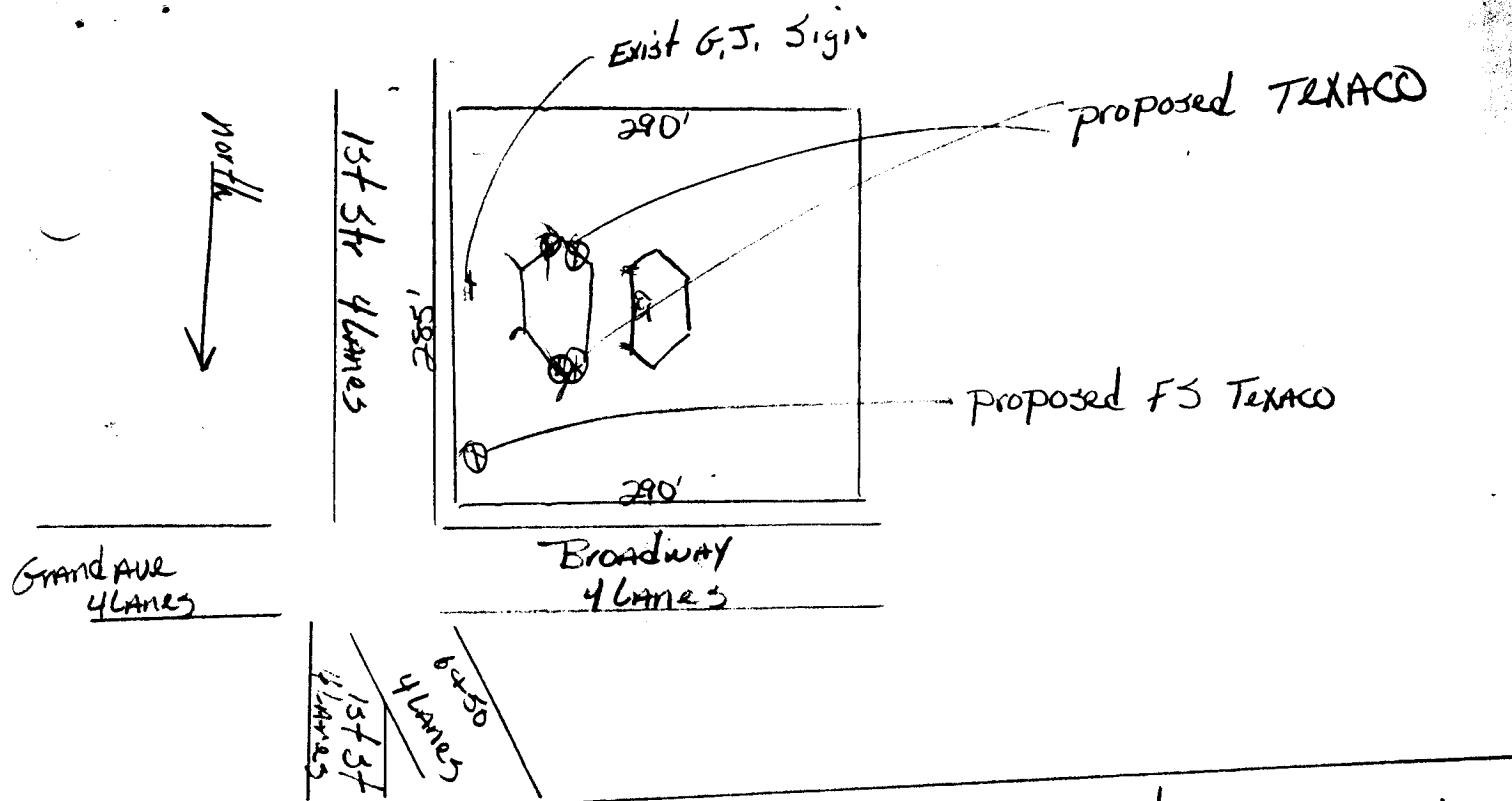 Exist G.J. Sign
proposed TEXACO
north
290'
1st Str 4 Lanes
285'
proposed FS TEXACO
290'
Grand Ave
4 Lanes
Broadway
4 Lanes
1st St
4 Lanes
6+50
4 Lanes